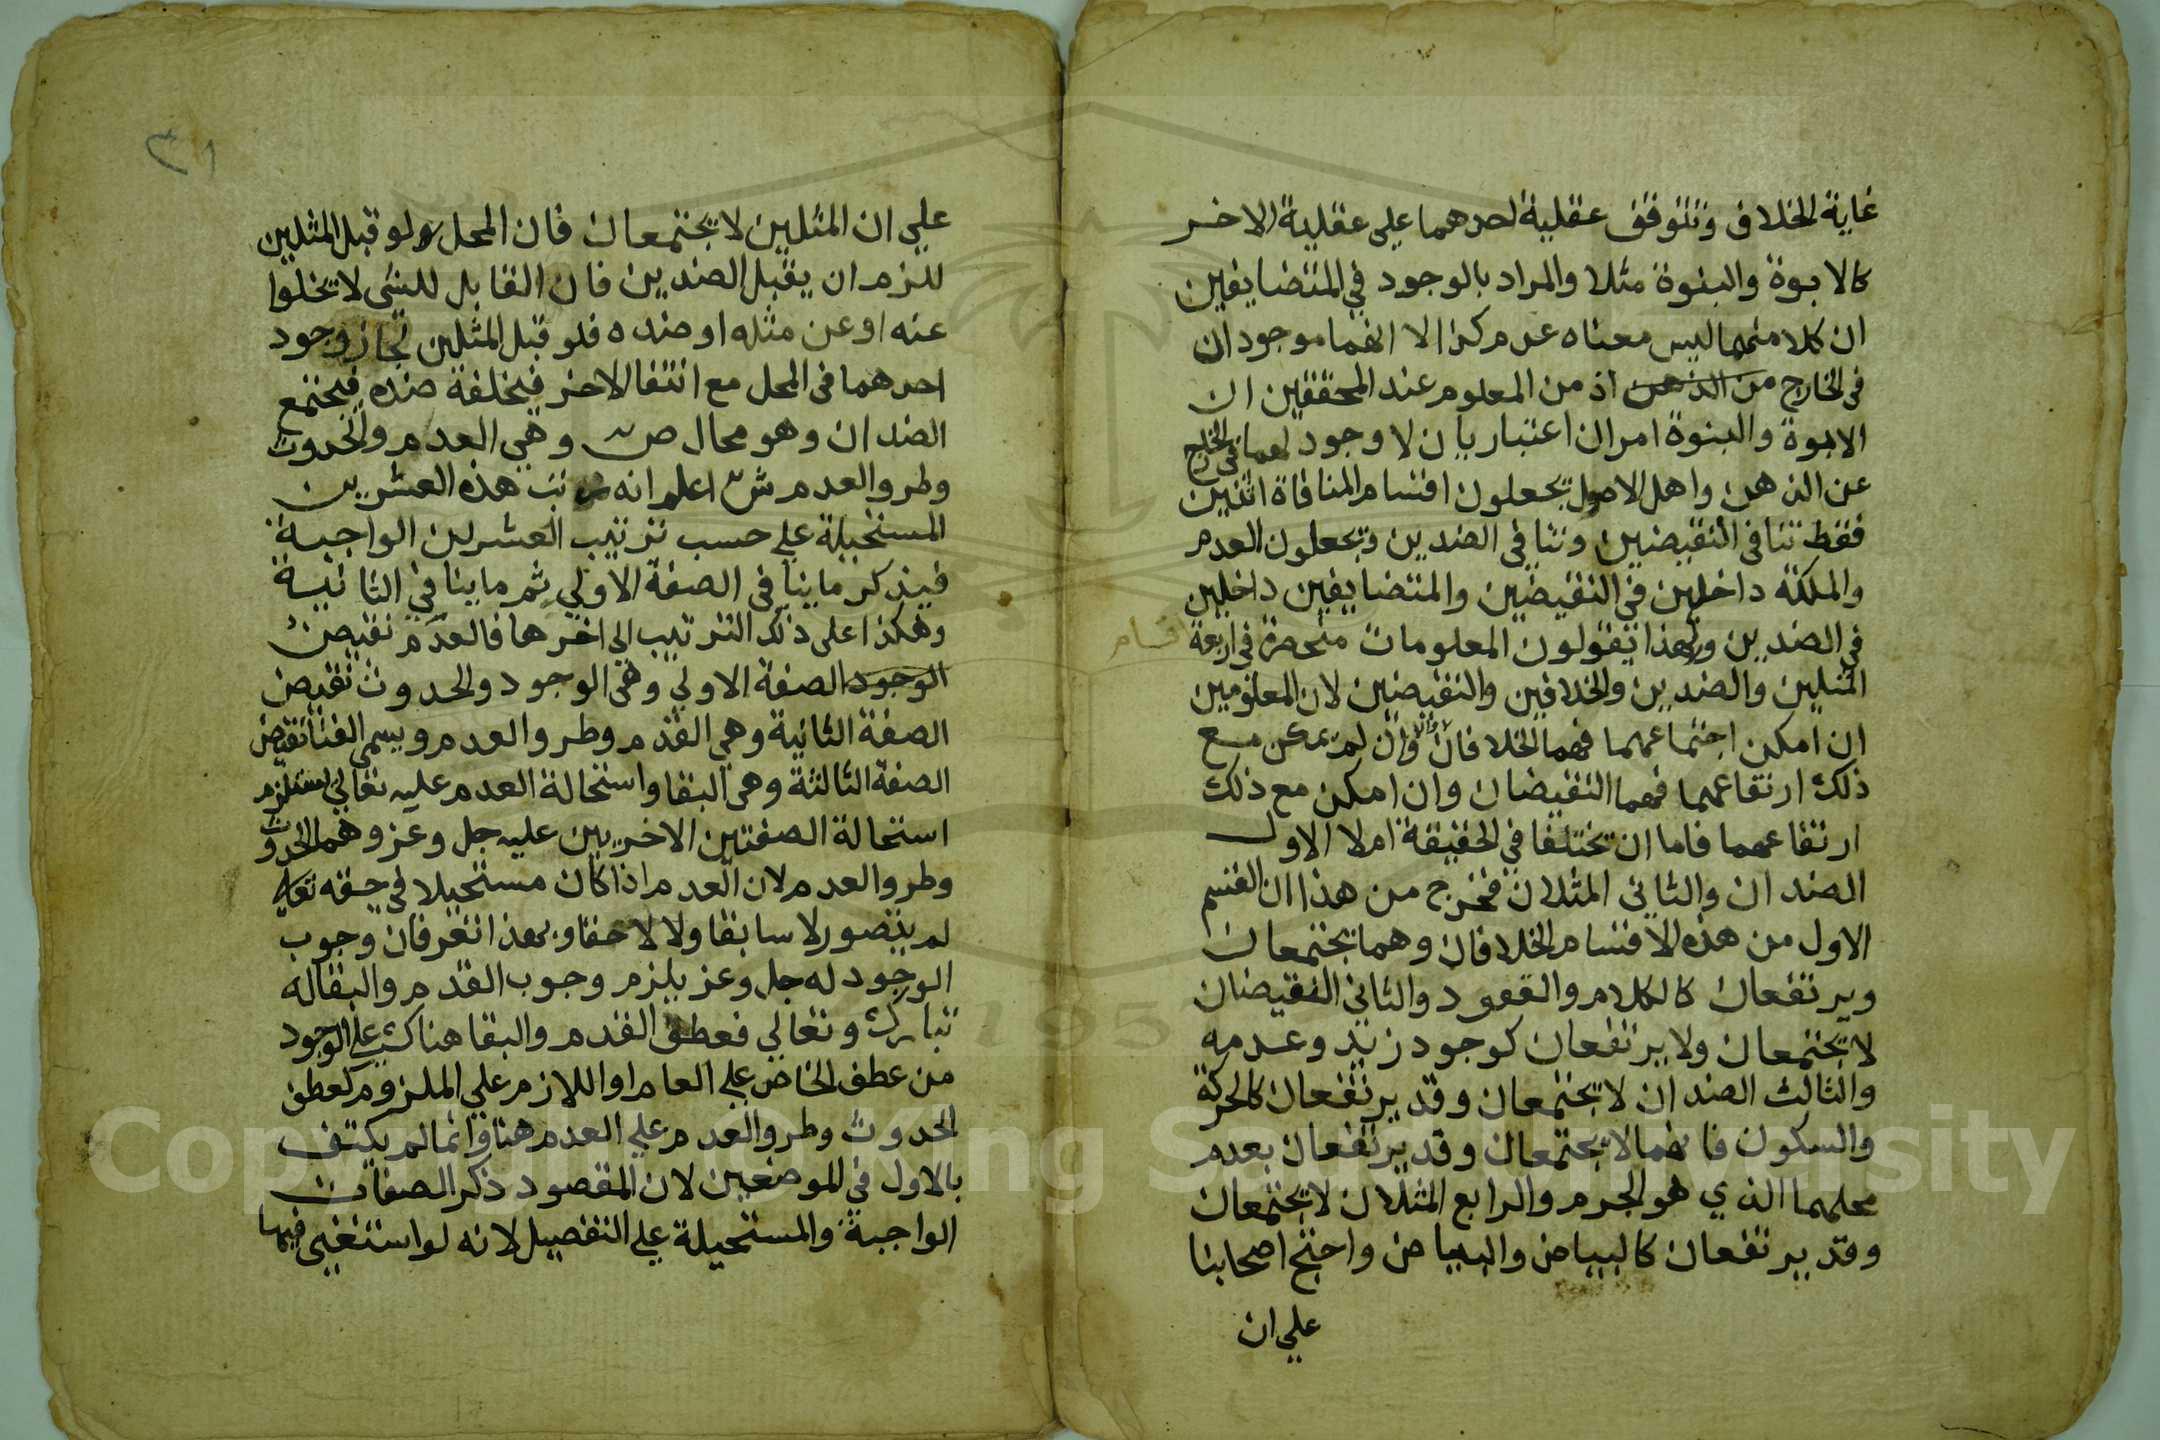 غاية الخلاف وتتوقف عقلية احدهما علي عقلية الاخر
كالابوة والبنوة مثلا والمراد بالوجود في المتضايفين
ان كلا منهما ليس معناه عدم كذا لا انهما موجودان
في الخارج من الذهن اذ من المعلوم عند المحققين ان
الابوة والبنوة امران اعتباريان لا وجود لهما في الخارج
عن الذهن واهل الاصول يجعلون اقسام المنافاة اثنين
فقط تنافي النقيضين وتنافي الضدين ويجعلون العدم
والملكة داخلين في النقيضين والمتضايفين داخلين
في الضدين ولهذا يقولون المعلومات منحصرة في اربعة اقسام
المثلين والضدين والخلافين والنقيضين لان المعلومين
ان امكن اجتماعهما فهما الخلافان والا وان لم يمكن مع
ذلك ارتقاعهما فهما النقيضان وان امكن مع ذلك
ارتفاعهما فاما ان يختلفا في الحقيقة ام لا الاول
الضدان والثاني المثلان فخرج من هذا ان القسم
الاول من هذه الاقسام الخلافان وهما يجتمعان
ويرتفعان كالكلام والقعود والثاني النقيضان
لا يجتمعان ولا يرتفعان كوجود زيد وعدمه
والثالث الضدان لا يجتمعان وقد يرتفعان كالحركة
والسكون فانهما لا يجتمعان وقد يرتفعان بعدم
محلهما الذي هو الجرم والرابع المثلان لا يجتمعان
وقد يرتفعان كالبياض والبياض واحتج اصحابنا
علي ان
٣١
علي ان المثلين لا يجتمعان فان المحل لو قبل المثلين
للزم ان يقبل الضدين فان القابل للشي لا يخلوا
عنه او عن مثله او ضده فلو قبل المثلين لجاز وجود
احدهما في المحل مع انتفا الاخر فيخلفه ضده فيجتمع
الضدان وهو محال ص وهي العدم والحدوث
وطرو العدم ش اعلم انه رتب هذه العشرين
المستحيلة علي حسب ترتيب العشرين الواجبة
فيذكر ما ينافي الصفة الاولي ثم ما ينافي الثانية
وهكذا على ذلك الترتيب الي اخرها فالعدم نقيض
الوجود الصفة الاولي وهي الوجود والحدوث نقيض
الصفة الثانية وهي القدم وطرو العدم ويسمي الفنا نقيض
الصفة الثالثة وهي البقا واستحالة العدم عليه تعالي تستلزم
استحالة الصفتين الاخريين عليه جل وعز وهما الحدوث
وطرو العدم لان العدم اذا كان مستحيلا في حقه تعالي
لم يتصور لا سابقا ولا لاحقا وبهذا تعرف ان وجوب
الوجود له جل وعز يلزم وجوب القدم والبقا له
تبارك وتعالي فعطف القدم والبقا هناك علي الوجود
من عطف الخاص علي العام او اللازم علي الملزوم كعطف
الحدوث وطرو العدم علي العدم هنا وانما لم يكتف
بالاول في الموضعين لان المقصود ذكر الصفات
الواجبة والمستحيلة علي التفصيل لانه لو استغني فيها
Copyright © King Saud University
1957